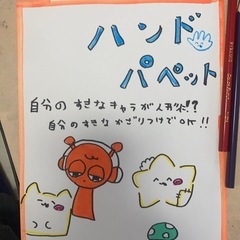 ハンド
パペット
自分のすきなキャラが人形に!?
自分のすきなかざりつけでOK!!